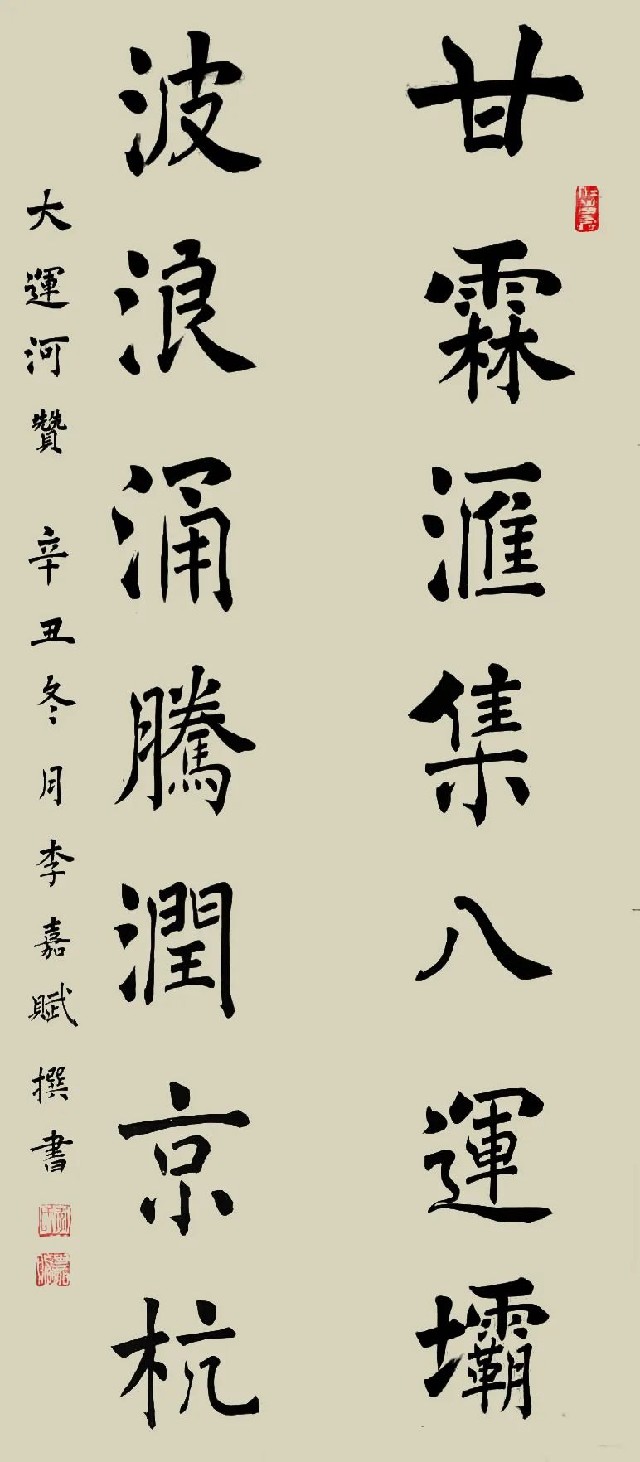 甘霖滙集八運壩
波浪涌騰潤京杭
大運河贊 辛丑冬月李嘉賦撰書